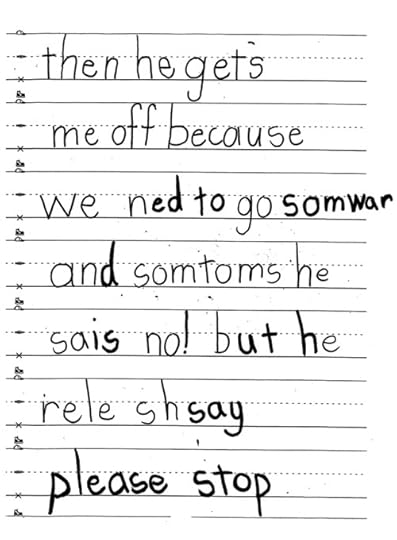 then he gets
me off because
we ned to go somwar
and somtoms he
sais no! but he
rele sh say
please stop